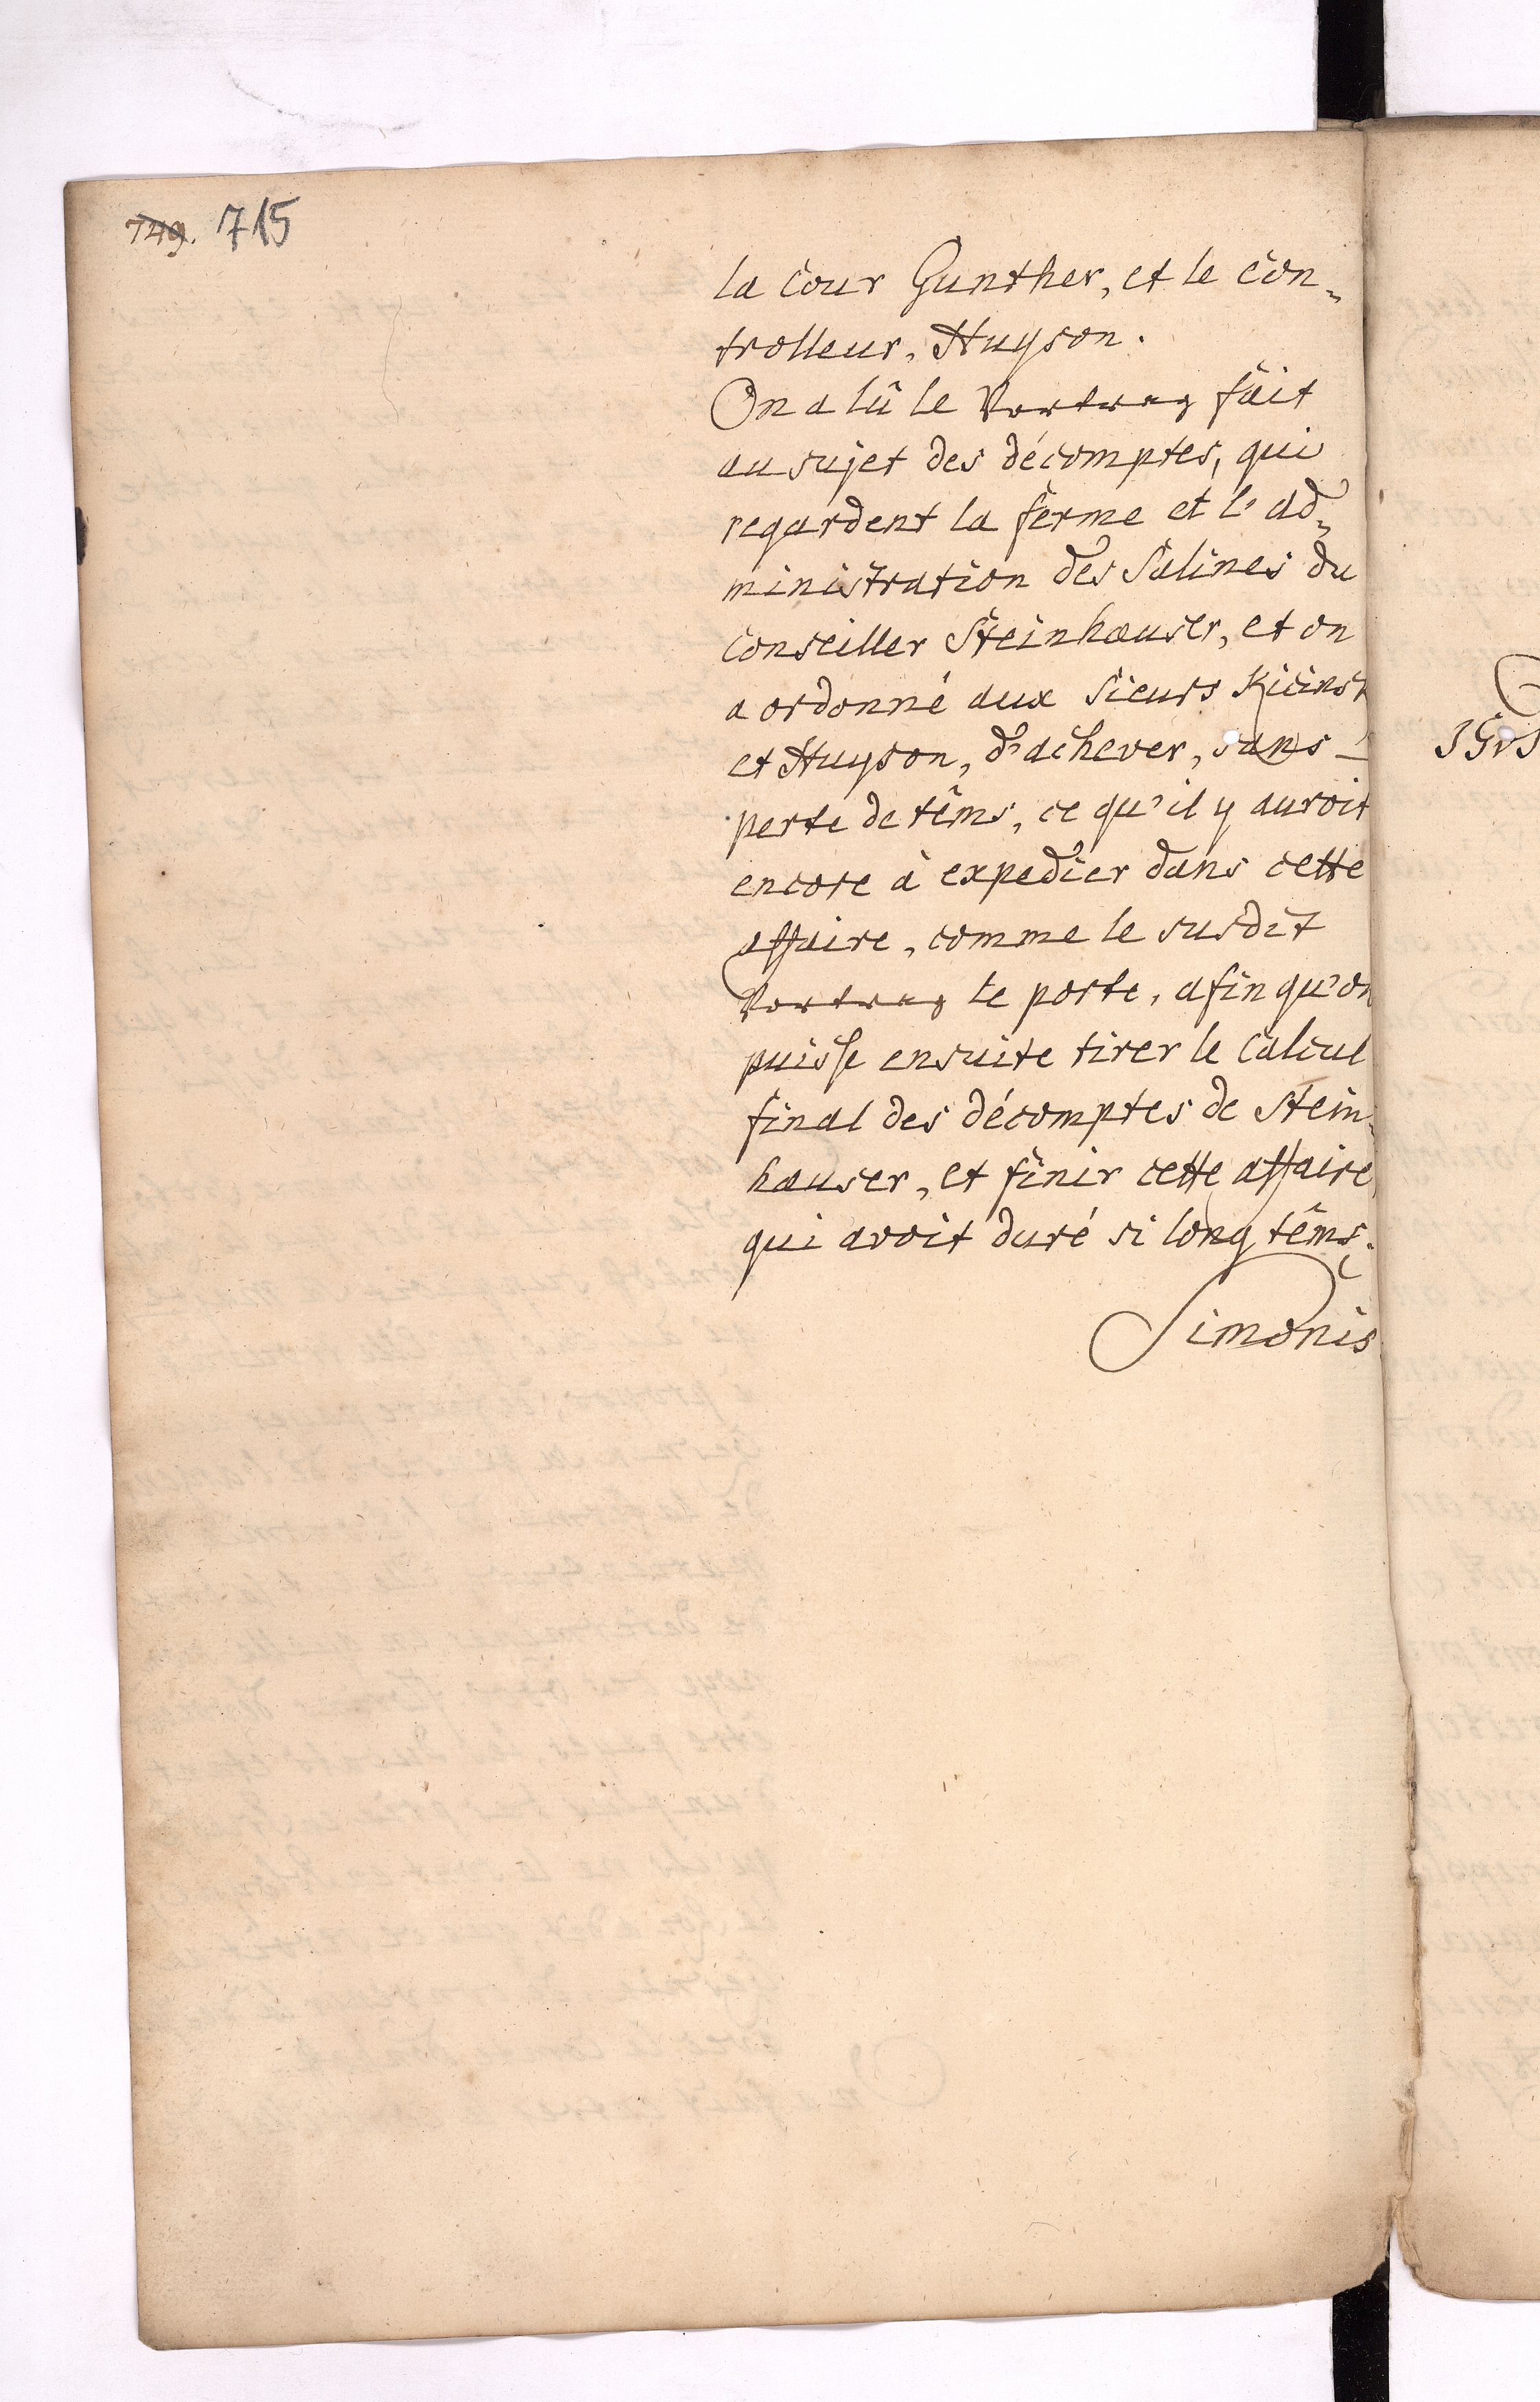 749. 715
la cour Gunther, et le con-
trolleur, Huyson.
On a lû le Vortrag fait
au sujet des décomptes, qui
regardent la ferme et l'ad-
ministration des Salines du
Conseiller Steinhauser, et on
a ordonné aux Sieurs
et Huyson, d'achever, sans
perte de têms, ce qu'il y auroit
encore à expedier dans cette
affaire, comme le susdit
Vortrag le porte, afin qu'on
puisse ensuite tirer le calcul
final des décomptes de Stein-
hauser, et finir cette affaire
qui avoit duré si long têms.
Simonis